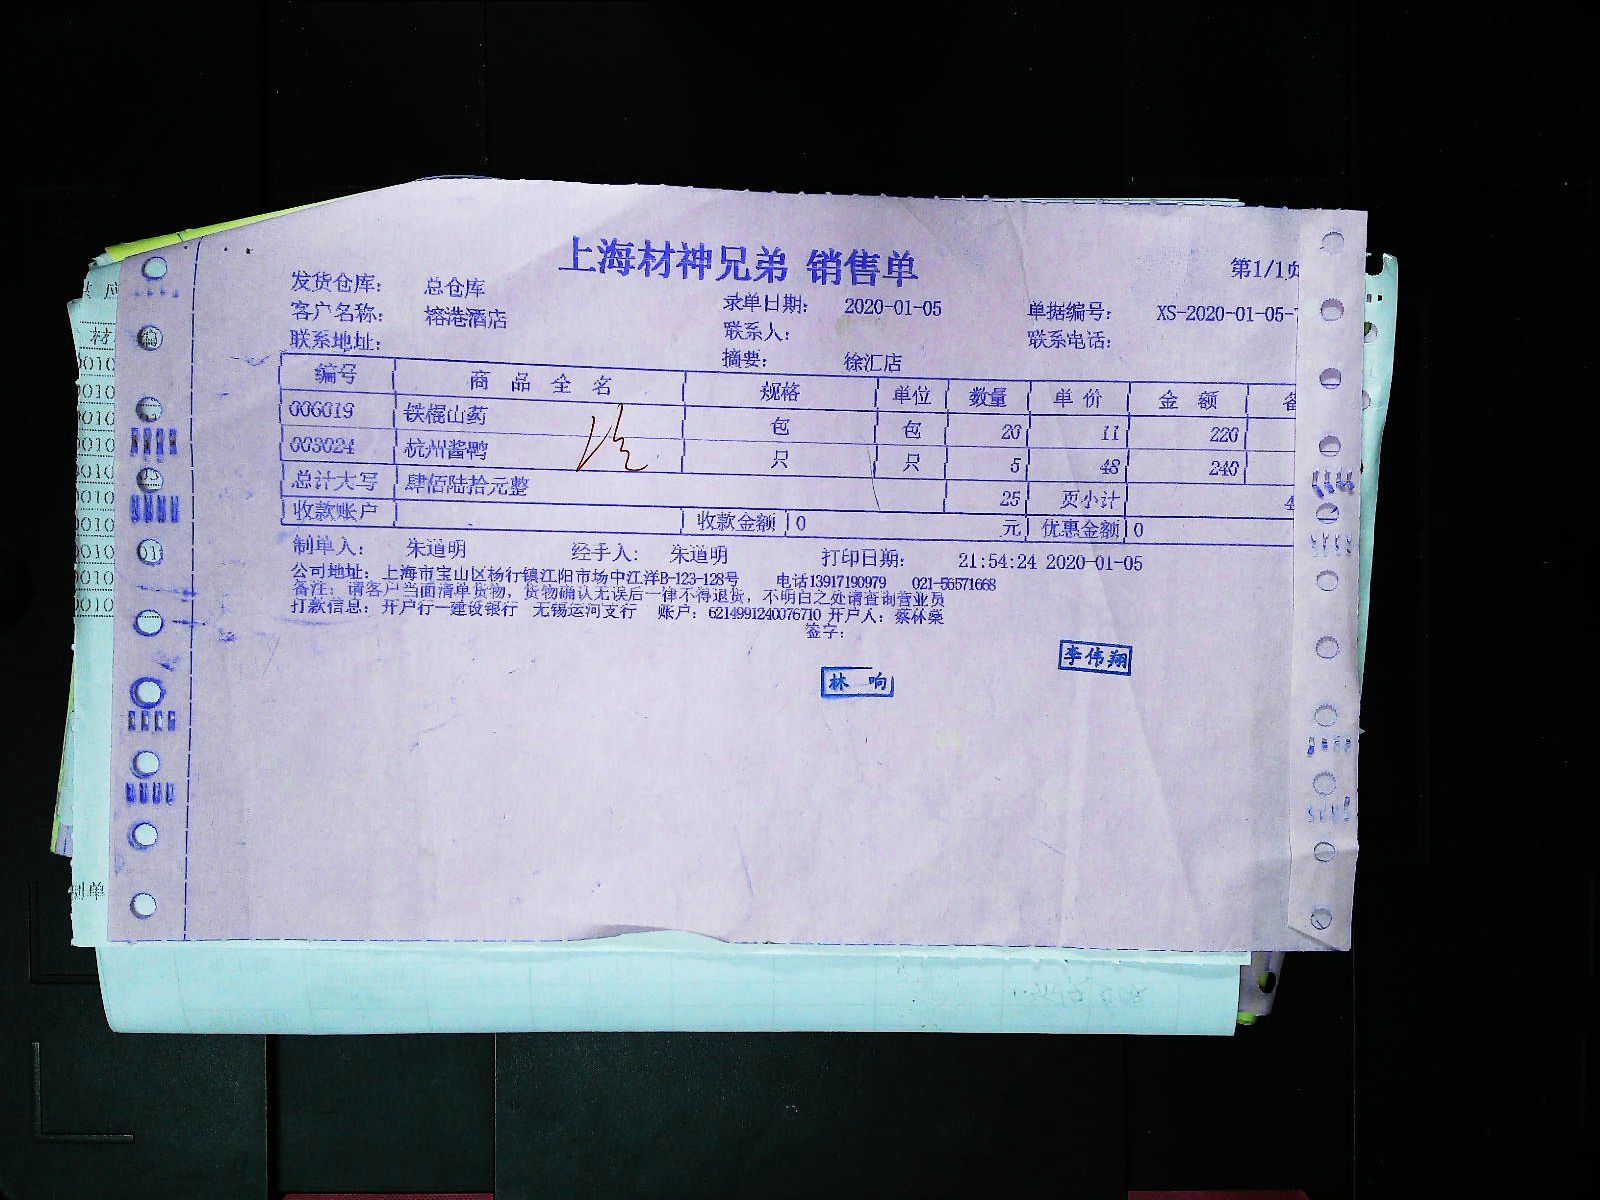 上海材神兄弟 销售单
第1/1页
发货仓库： 总仓库
客户名称： 榕港酒店 录单日期： 2020-01-05 单据编号： XS-2020-01-05-
联系地址： 联系人： 联系电话：
摘要： 徐汇店
编号 商 品 全 名 规格 单位 数量 单 价 金 额 备
006019 铁棍山药 包 包 20 11 220
003024 杭州酱鸭 只 只 5 48 240
总计大写 肆佰陆拾元整 25 页小计 4
收款账户 收款金额 0 元 优惠金额 0
制单人： 朱道明 经手人： 朱道明 打印日期： 21:54:24 2020-01-05
公司地址：上海市宝山区杨行镇江阳市场中江洋B-123-128号 电话13917190979 021-56571668
备注：请客户当面清单货物，货物确认无误后一律不得退货，不明白之处请查询营业员
打款信息：开户行一建设银行 无锡运河支行 账户：6214991240076710 开户人：蔡林荣
签字：
李伟翔
林 响